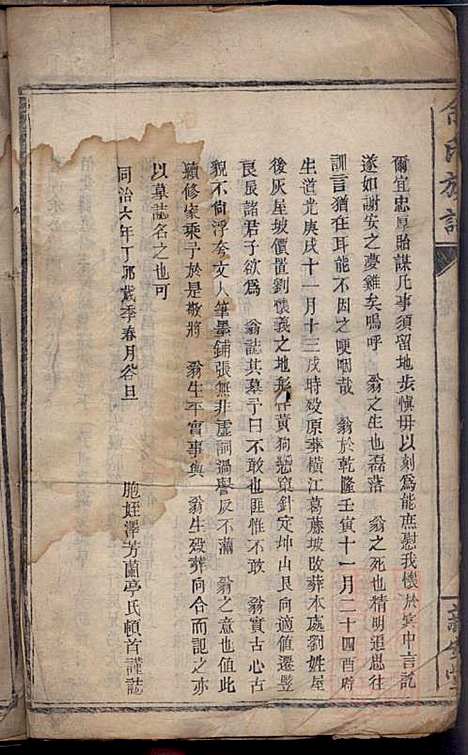 爾宜忠厚貽謀凡事須留地步慎毋以刻為能庶慰我懷於冥中言訖
遂如謝安之夢雞矣嗚呼 翁之生也磊落 翁之死也精明追思往
訓言猶在耳能不因之哽咽哉 翁於乾隆壬寅十一月二十四酉時
生道光庚戌十一月十三戌時殁原葬橫江葛藤坡改葬本處劉姓屋
後灰屋坡價置劉懷義之地形作黃狗惡窠針定坤山艮向適值遷竪
良辰諸君子欲為 翁誌其墓予曰不敢也匪惟不敢 翁實古心古
貌不尚浮夸文人筆墨鋪張無非虛詞過譽反不滿 翁之意也值此
續修家乘予於是敬將 翁生平實事與 翁生殁葬向合而記之亦
以墓誌名之也可
同治六年丁卯歲季春月谷旦
胞姪澤芳蘭亭氏頓首謹誌
氏族譜
堂